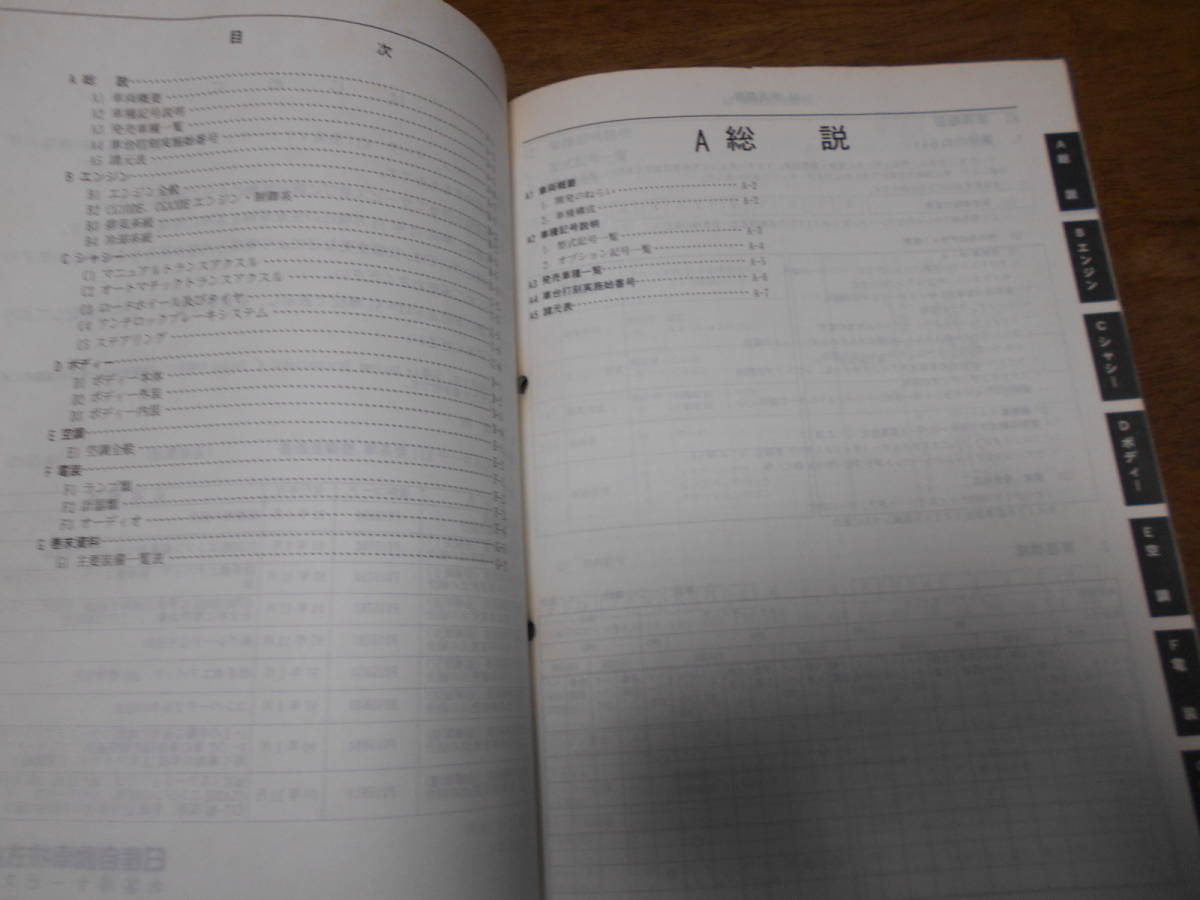 目 次
A 総 説
A1 車両概要
A2 車種記号説明
A3 発売車種一覧
A4 車台打刻実施始番号
A5 諸元表
B エンジン
B1 エンジン全般
B2 CG10DE、CG13DEエンジン・制御系
B3 排気系統
B4 冷却系統
C シャシー
C1 マニュアルトランスアクスル
C2 オートマチックトランスアクスル
C3 ロードホイール及びタイヤ
C4 アンチロックブレーキシステム
C5 ステアリング
D ボディー
D1 ボディー本体
D2 ボディー外装
D3 ボディー内装
E 空調
E1 空調全般
F 電装
F1 ランプ類
F2 計器類
F3 オーディオ
G 巻末資料
G1 主要装備一覧表
A 総 説
A1 車両概要
1. 開発のねらい A-2
2. 車種構成 A-2
A2 車種記号説明
1. 型式記号一覧 A-3
2. オプション記号一覧 A-4
A3 発売車種一覧 A-5
A4 車台打刻実施始番号 A-6
A5 諸元表 A-7
A 総 説
B エンジン
C シャシー
D ボディー
E 空 調
F 電 装